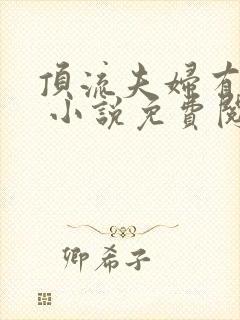 頂流夫婦有
小說免費閱
卿希子